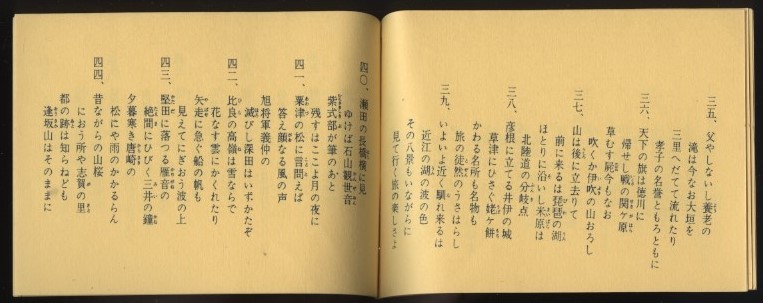 三五、父やしないし養老の
滝は今なお大垣を
三里へだてて流れたり
孝子の名誉ともろともに
三六、天下の旗は徳川に
帰せし戦の関ヶ原
草むす屍今もなお
吹くか伊吹の山おろし
三七、山は後に立去りて
前に来るは琵琶の湖
ほとりに沿いし米原は
北陸道の分岐点
三八、彦根に立てる井伊の城
草津にひさぐ姥ヶ餅
かわる名所も名物も
旅の徒然のうさはらし
三九、いよいよ近く馴れ来るは
近江の湖の波の色
その八景もいながらに
見て行く旅の楽しさよ
四〇、瀬田の長橋横に見て
ゆけば石山観世音
紫式部が筆のあと
残すはここよ月の夜に
四一、粟津の松に言問えば
答え顔なる風の声
旭将軍義仲の
滅びし深田はいずかたぞ
四二、比良の高嶺は雪ならで
花なす雲にかくれたり
矢走に急ぐ船の帆も
見えてにぎおう波の上
四三、堅田に落つる雁音の
絶間にひびく三井の鐘
夕暮寒き唐崎の
松にや雨のかかるらん
四四、昔ながらの山桜
におう所や志賀の里
都の跡は知らねども
逢坂山はそのままに